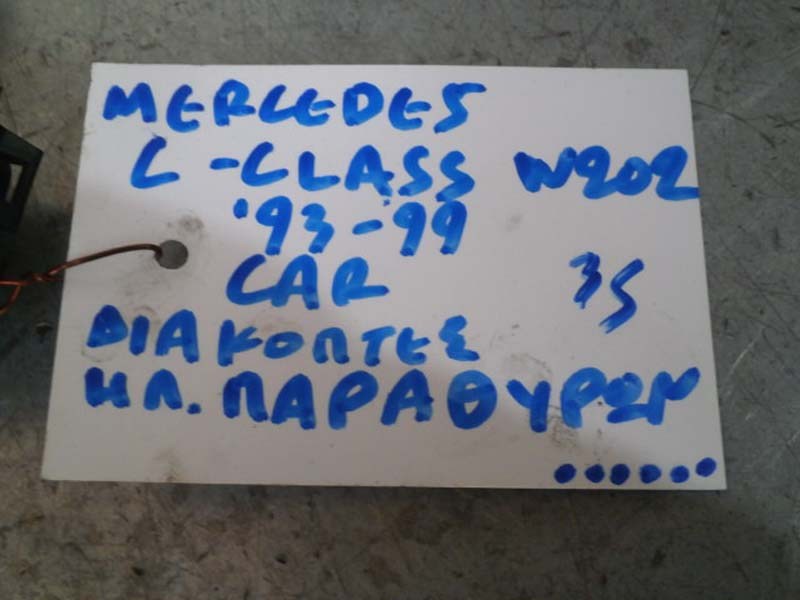 MERCEDES
C-CLASS W202
'93-99
CAR 35
ΔΙΑΚΟΠΤΕΣ
ΗΛ. ΠΑΡΑΘΥΡΩΝ
......